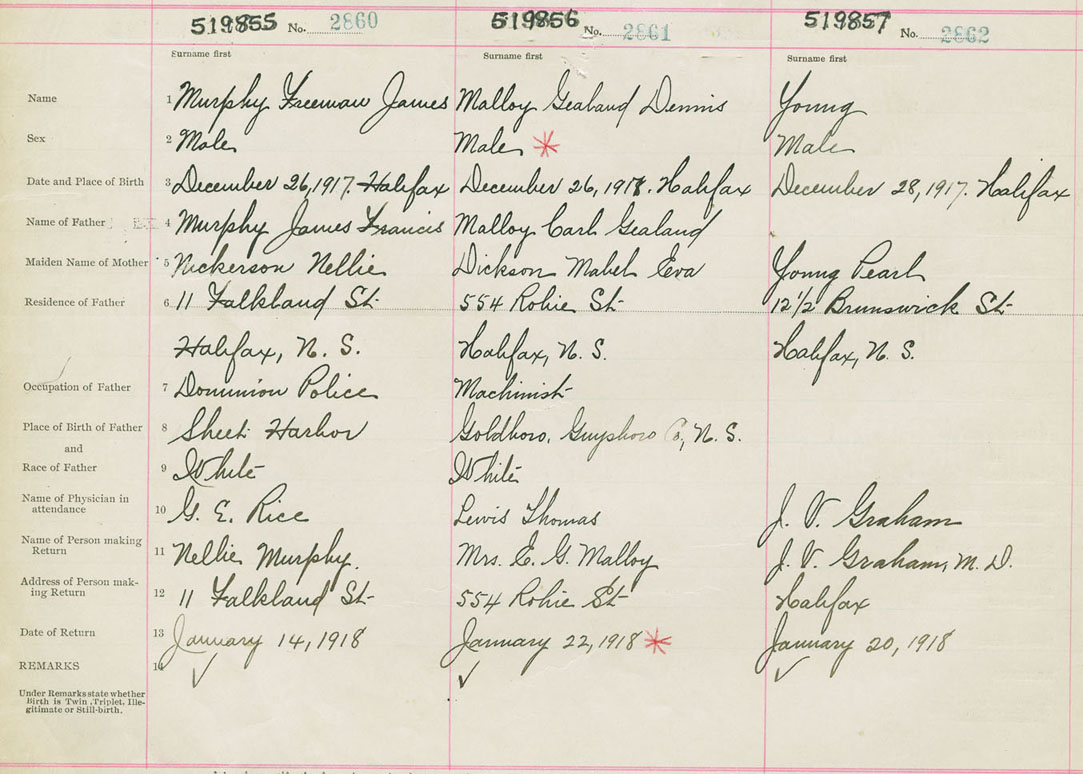 519855 No. 2860 519856 No. 2861 519857 No. 2862
Surname first Surname first Surname first
Name 1 Murphy Freeman James Malloy Gealand Dennis Young
Sex 2 Male Male * Male
Date and Place of Birth 3 December 26, 1917. Halifax December 26, 1917. Halifax December 28, 1917. Halifax
Name of Father 4 Murphy James Francis Malloy Carl Gealand
Maiden Name of Mother 5 Nickerson Nellie Dickson Mabel Eva Young Pearl
Residence of Father 6 11 Falkland St 554 Robie St 12 1/2 Brunswick St
Halifax, N. S. Halifax, N. S. Halifax, N. S.
Occupation of Father 7 Dominion Police Machinist
Place of Birth of Father 8 Sheet Harbor Goldboro, Guysboro Co, N. S.
and
Race of Father 9 White White
Name of Physician in
attendance 10 G. E. Rice Lewis Thomas J. V. Graham
Name of Person making
Return 11 Nellie Murphy. Mrs. C. G. Malloy J. V. Graham, M. D.
Address of Person mak-
ing Return 12 11 Falkland St 554 Robie St Halifax
Date of Return 13 January 14, 1918 January 22, 1918 * January 20, 1918
REMARKS 14 ✓ ✓ ✓
Under Remarks state whether
Birth is Twin, Triplet, Ille-
gitimate or Still-birth.